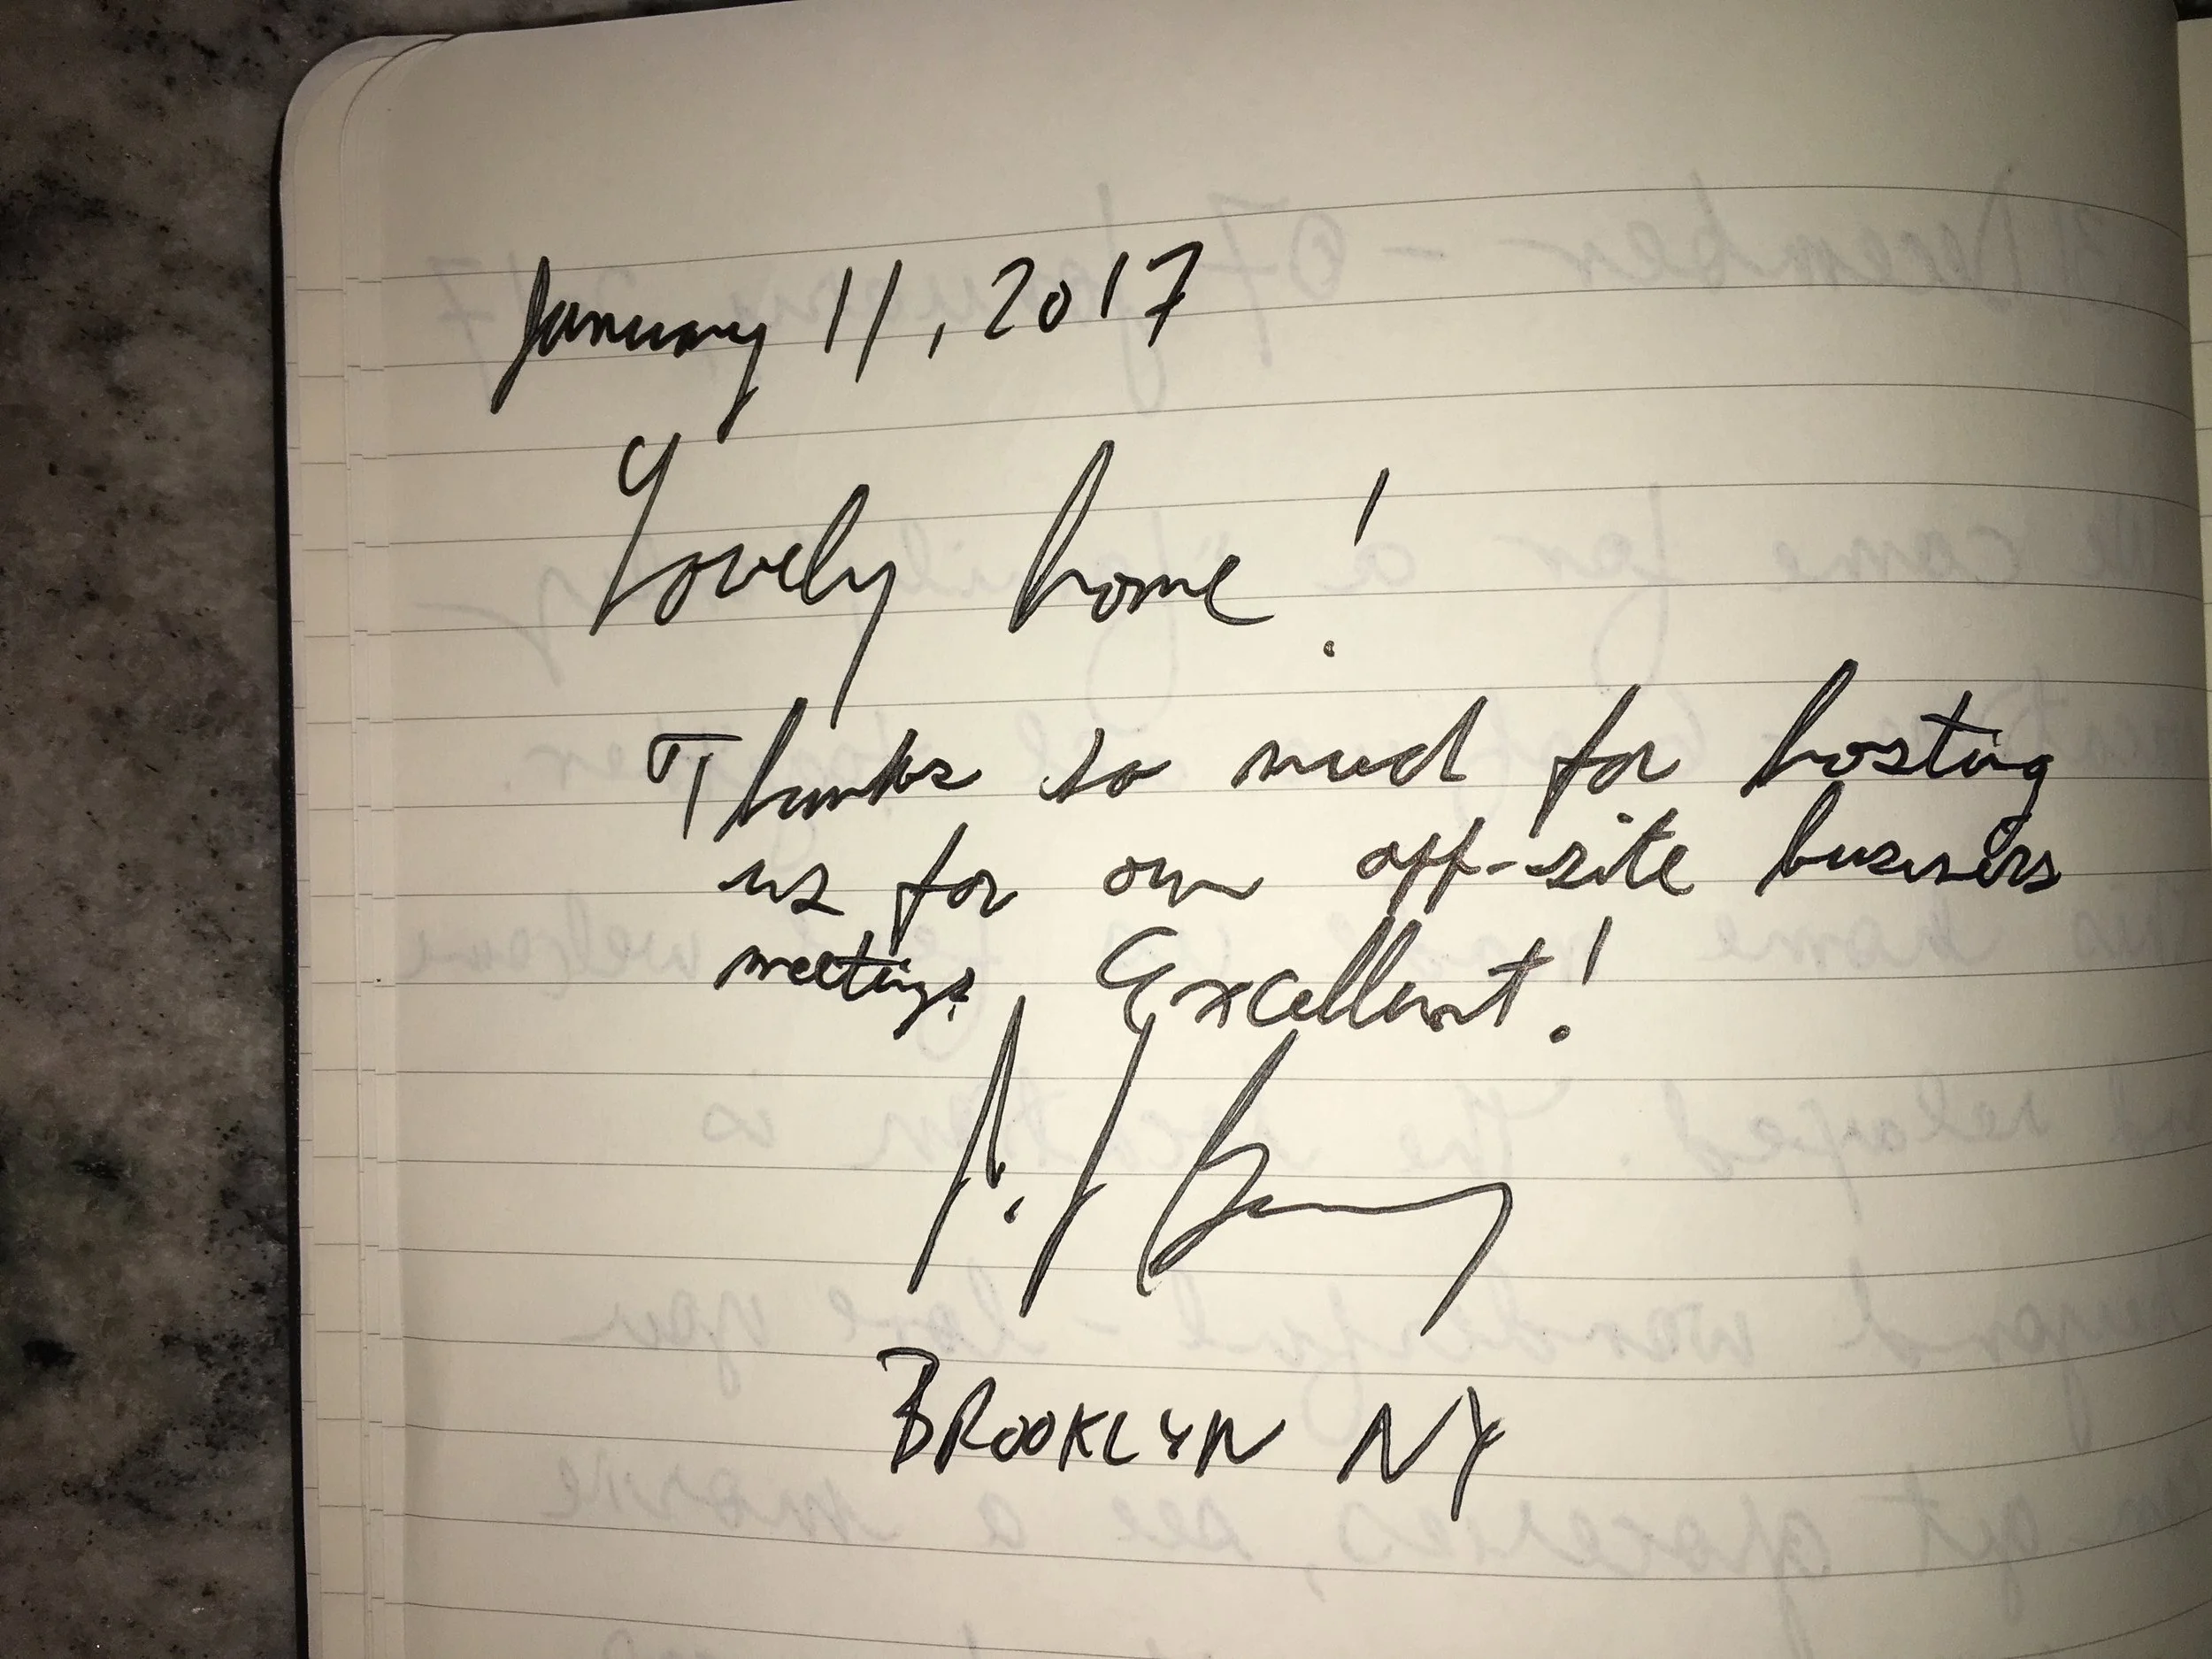 January 11, 2017
Lovely home!
Thanks so much for hosting
us for our off-site business
meetings. Excellent!
BROOKLYN NY